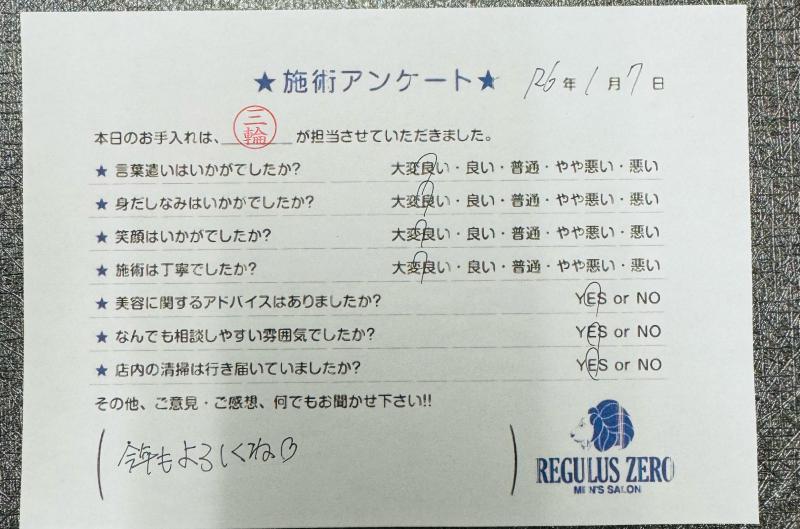 ★施術アンケート★ R6年1月7日
本日のお手入れは、三輪が担当させていただきました。
★ 言葉遣いはいかがでしたか? 大変良い・良い・普通・やや悪い・悪い
★ 身だしなみはいかがでしたか? 大変良い・良い・普通・やや悪い・悪い
★ 笑顔はいかがでしたか? 大変良い・良い・普通・やや悪い・悪い
★ 施術は丁寧でしたか? 大変良い・良い・普通・やや悪い・悪い
★ 美容に関するアドバイスはありましたか? YES or NO
★ なんでも相談しやすい雰囲気でしたか? YES or NO
★ 店内の清掃は行き届いていましたか? YES or NO
その他、ご意見・ご感想、何でもお聞かせ下さい!!
(今年もよろしくね♡)
REGULUS ZERO
MEN'S SALON